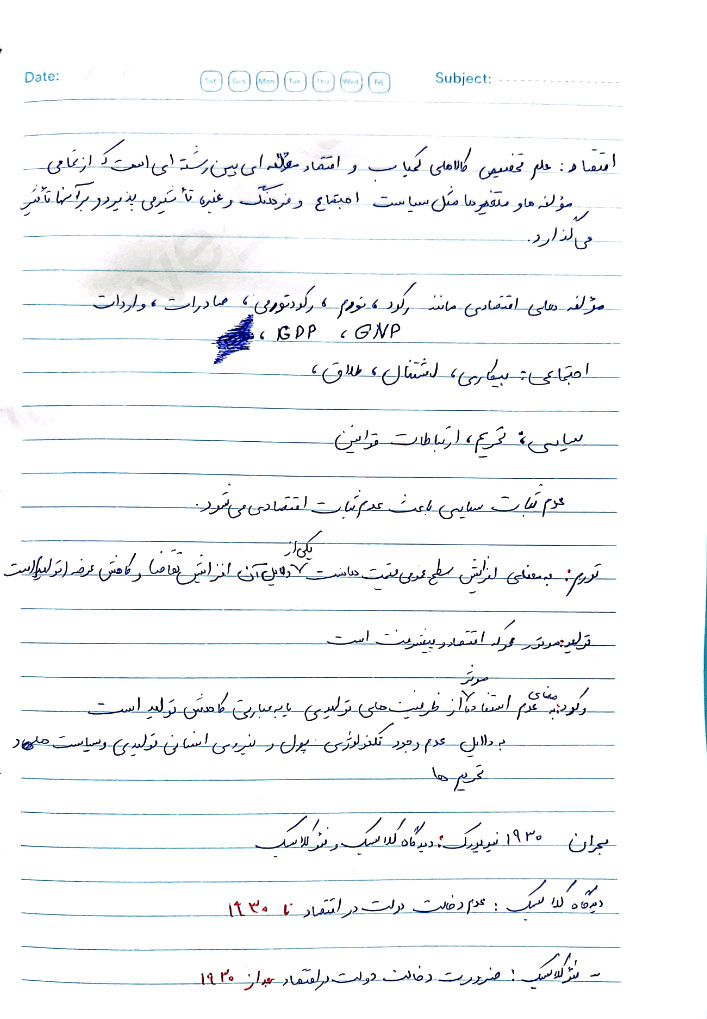 Date:
Sat Sun Mon Tue Thu Wed Fri
Subject:
اقتصاد: علم تخصیص کالاهای کمیاب و اقتصاد مؤلفه ای بین رشته ای است که از تمامی
مؤلفه ها و متغیرها مثل سیاست اجتماع و فرهنگ و غیره تأثیر می پذیرد و بر آنها تأثیر
می گذارد.
مؤلفه های اقتصادی مانند رکود، تورم، رکود تورمی، صادرات، واردات
GNP، GDP،
اجتماعی: بیکاری، اشتغال، طلاق،
سیاسی: تحریم، ارتباطات قوانین
عدم ثبات سیاسی باعث عدم ثبات اقتصادی می شود.
یکی از
تورم: به معنای افزایش سطح عمومی قیمت هاست دلایل آن افزایش تقاضا و کاهش عرضه (تولید) است
تولید: موتور محرکه اقتصاد و پیشرفت است
موثر
رکود: به معنای عدم استفاده از ظرفیت های تولیدی یا به عبارتی کاهش تولید است
به دلایل عدم وجود تکنولوژی پول و نیروی انسانی تولیدی و سیاست ها و
تحریم ها
بحران ۱۹۳۰ نیویورک: دیدگاه کلاسیک و نئوکلاسیک
دیدگاه کلاسیک: عدم دخالت دولت در اقتصاد تا ۱۹۳۰
- نئوکلاسیک: ضرورت دخالت دولت در اقتصاد بعد از ۱۹۳۰